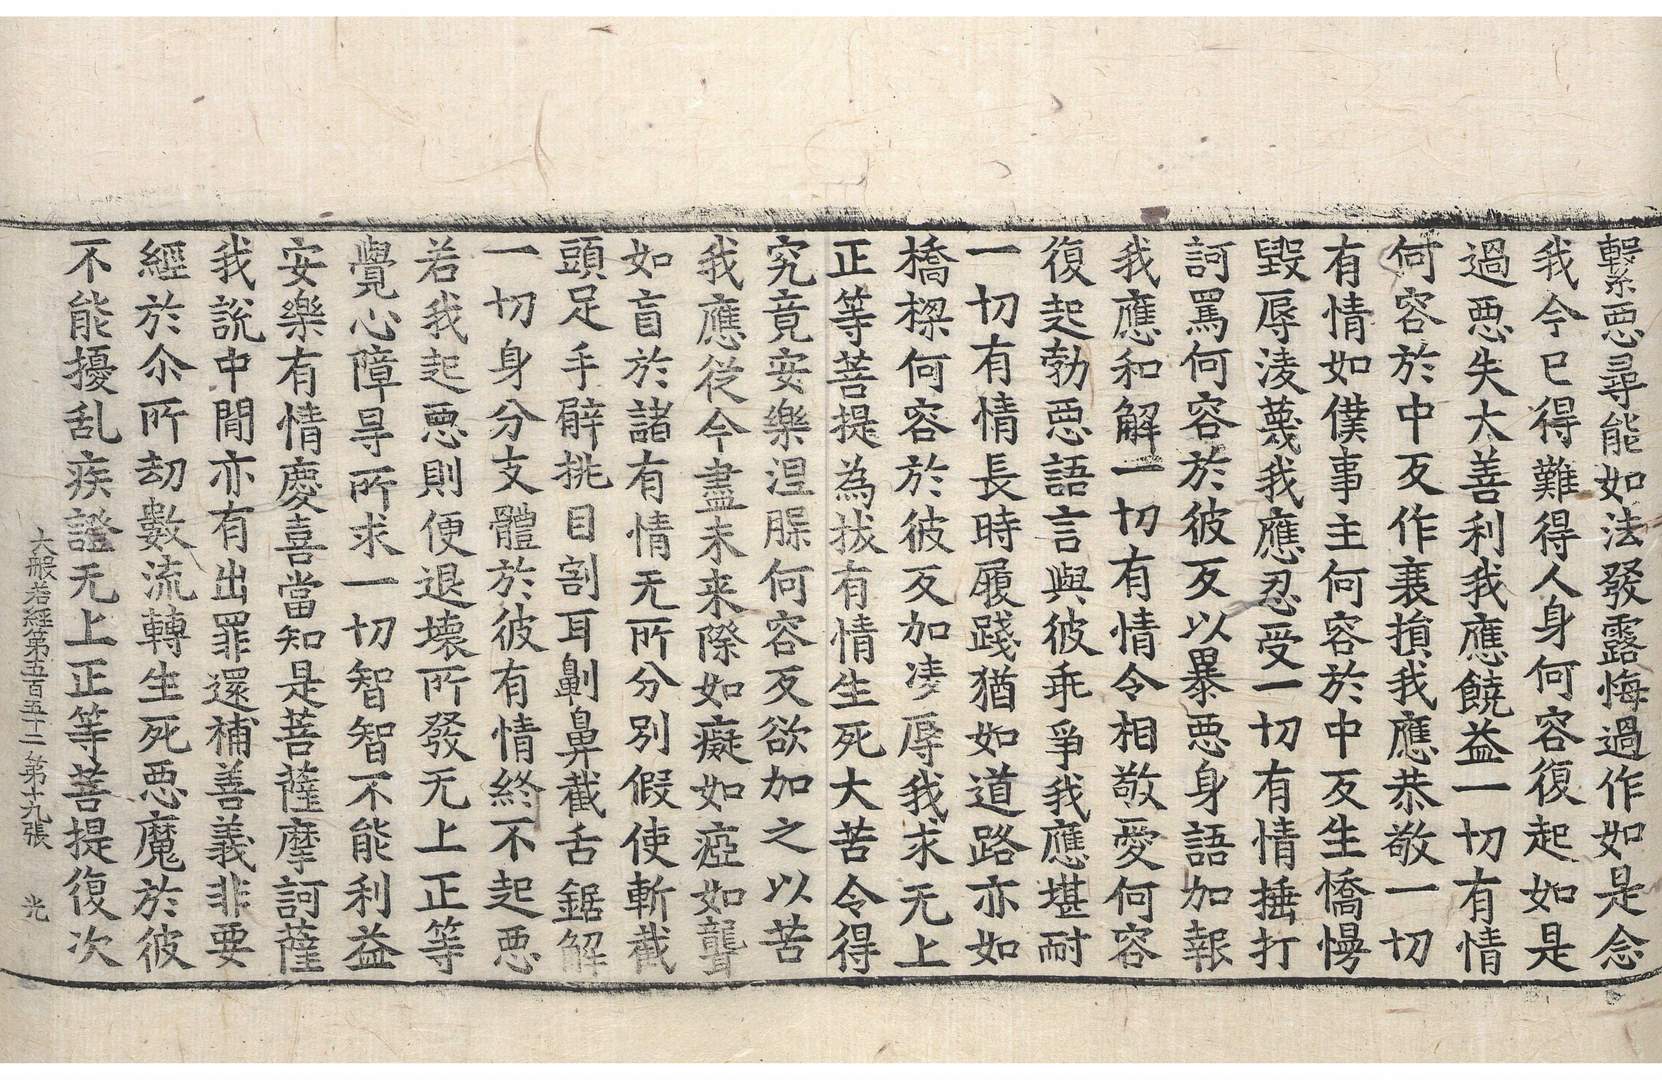 輕惡尋能如法發露悔過作如是念
我今已得難得人身何容復起如是
過惡失大善利我應饒益一切有情
何容於中反作衰損我應恭敬一切
有情如僕事主何容於中反生憍慢
毀辱淩蔑我應忍受一切有情捶打
訶罵何容於彼反以暴惡身語加報
我應和解一切有情令相敬愛何容
復起勃惡語言與彼乖爭我應堪耐
一切有情長時履踐猶如道路亦如
橋樑何容於彼反加凌辱我求无上
正等菩提為拔有情生死大苦令得
究竟安樂涅槃何容反欲加之以苦
我應從今盡未来際如癡如瘂如聾
如盲於諸有情无所分別假使斬截
頭足手臂挑目割耳劓鼻截舌鋸解
一切身分支體於彼有情終不起惡
若我起惡則便退壞所發无上正等
覺心障㝵所求一切智智不能利益
安樂有情慶喜當知是菩薩摩訶薩
我說中閒亦有出罪還補善義非要
經於尒所劫數流轉生死惡魔於彼
不能擾乱疾證无上正等菩提復次
大般若經第五百五十二 第十九張 光